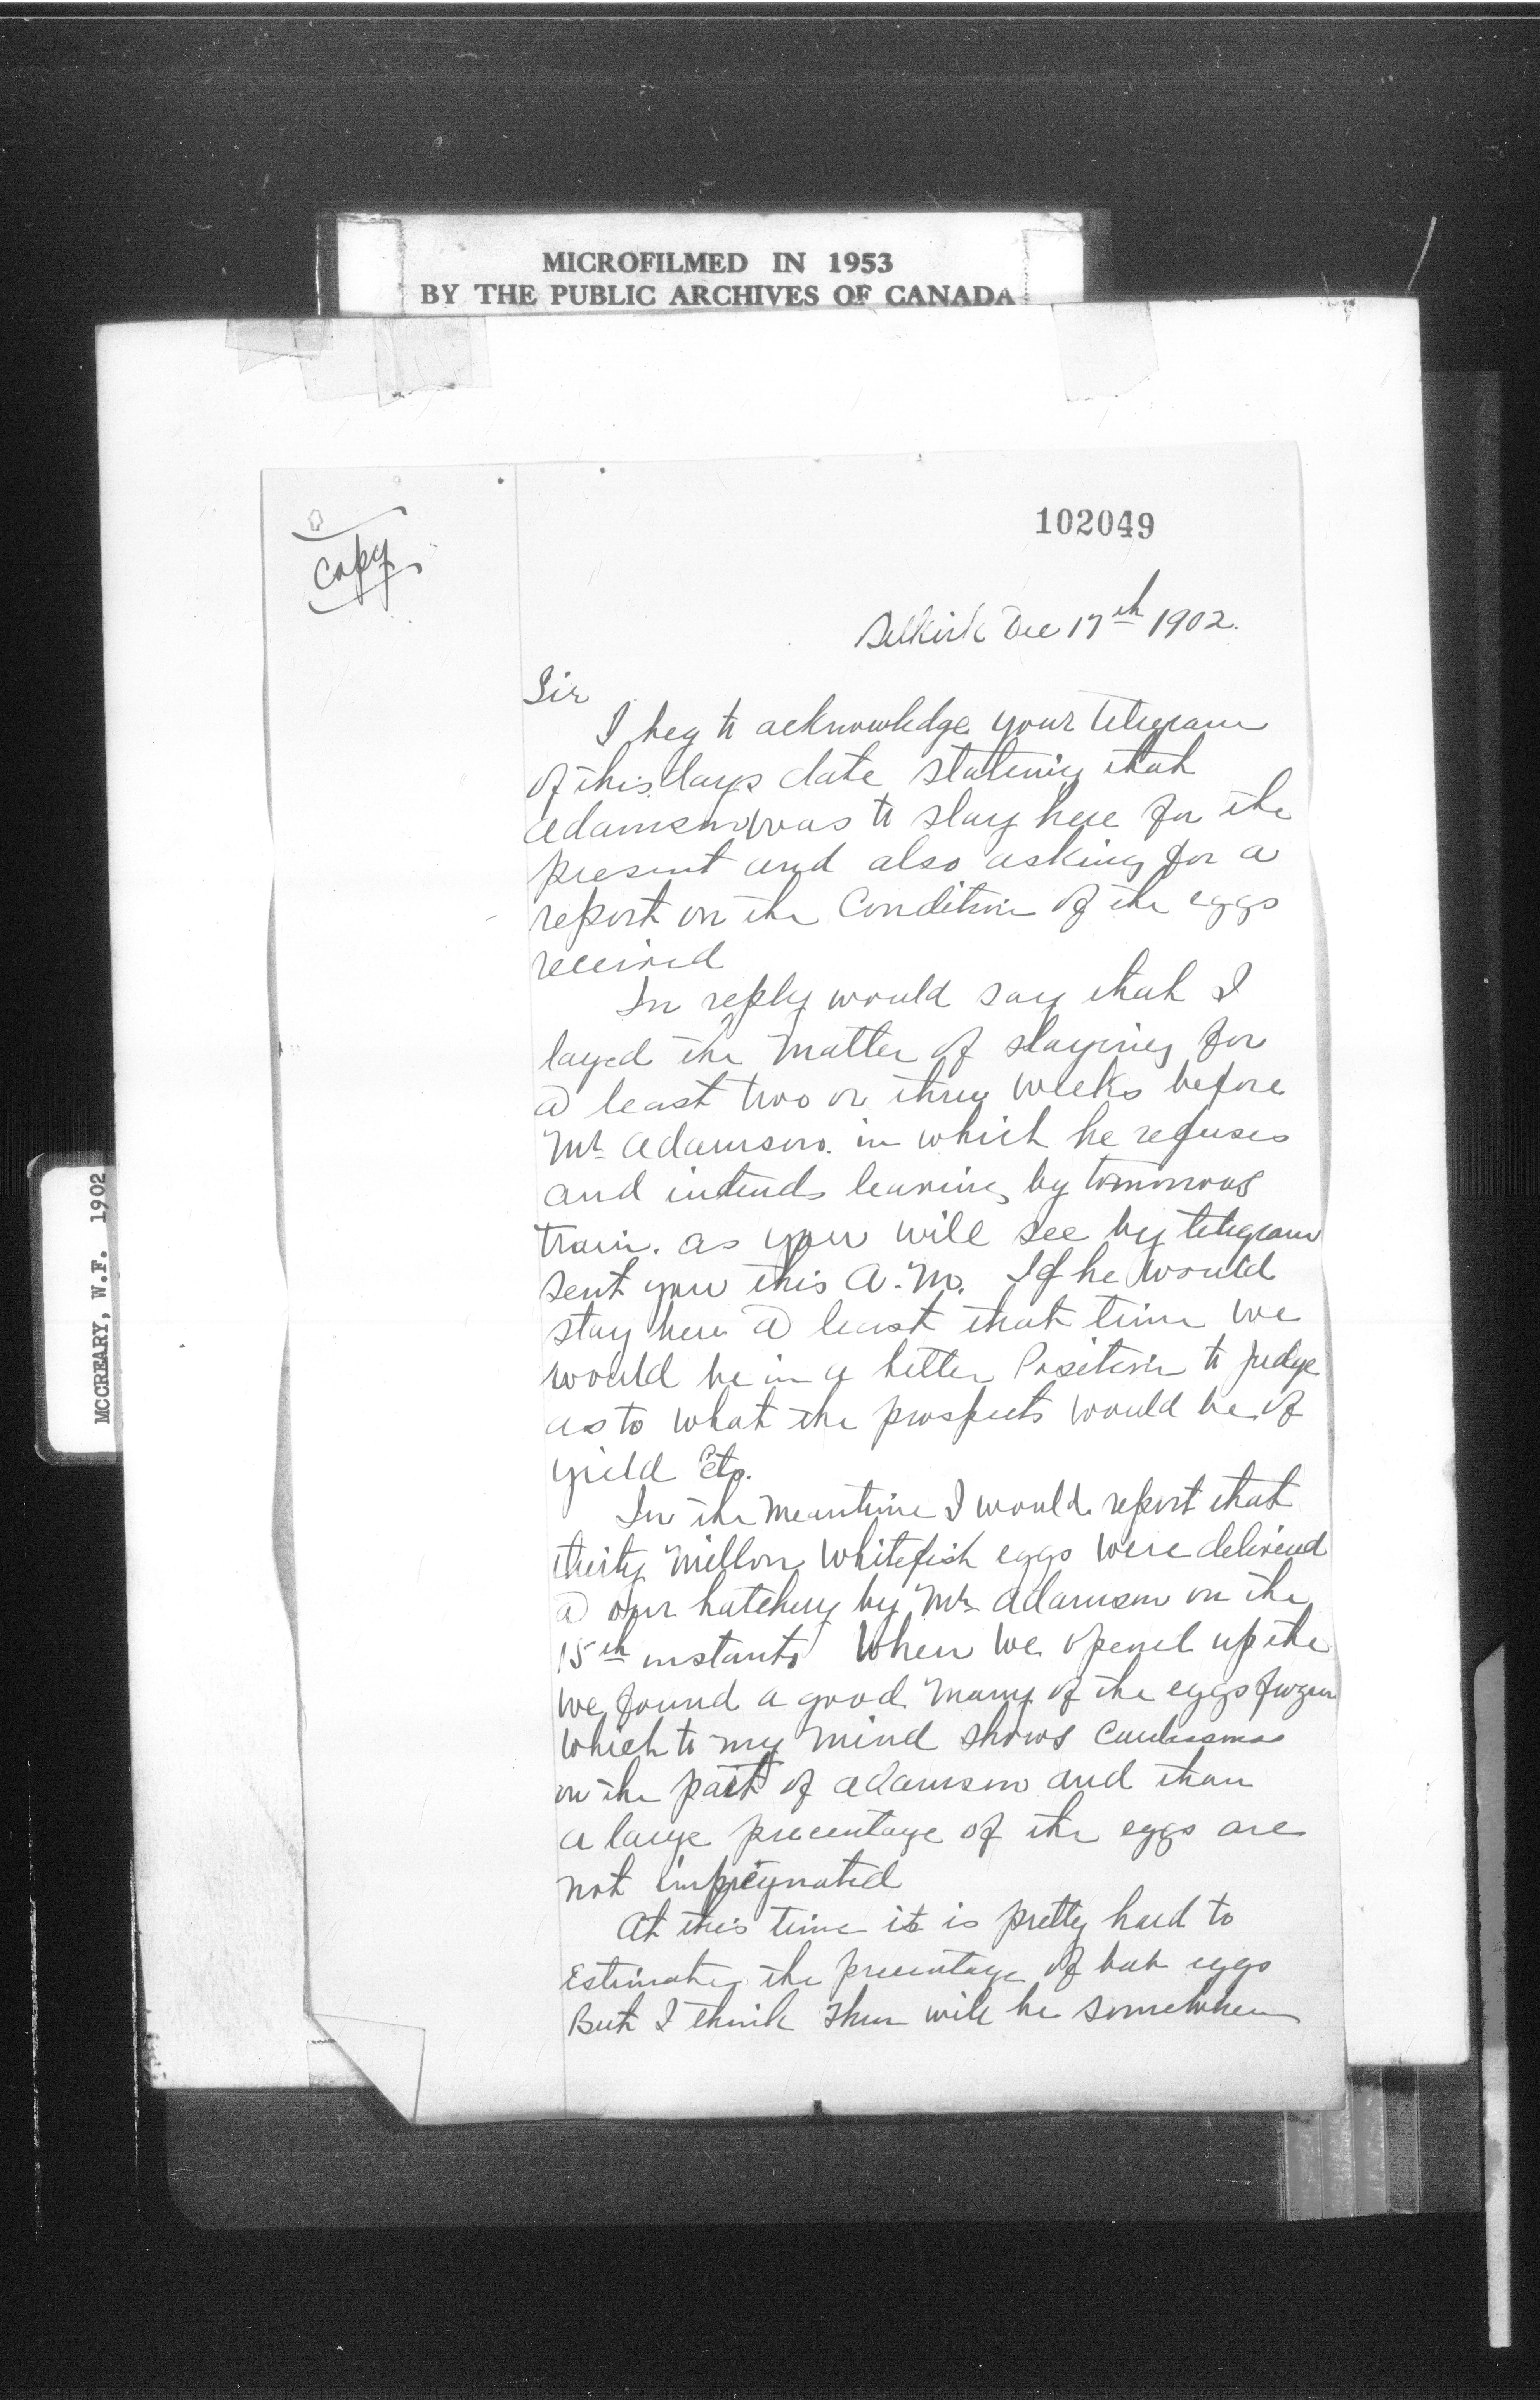 MICROFILMED IN 1953
BY THE PUBLIC ARCHIVES OF CANADA
102049
Copy
Selkirk Dec 17th 1902.
Sir
I beg to acknowledge your telegram
of this days date stating that
Adamson was to stay here for the
present and also asking for a
report on the Condition of the eggs
received
In reply would say that I
layed the matter of staying for
@ least two or three weeks before
Mr Adamson. in which he refuses
and intends leaving by tomorrows
train. as you will see by telegram
sent you this A.M. If he would
stay here @ least that time we
would be in a better Position to judge
as to what the prospects would be of
yield Etc.
In the meantime I would report that
thirty million Whitefish eggs were delivered
@ our hatchery by Mr Adamson on the
15th instant When we opened up the
we found a good many of the eggs frozen
which to my mind shows Carelessness
on the part of Adamson and than
a large precentage of the eggs are
not impregnated
At this time it is pretty hard to
Estimate the precentage of bad eggs
But I think there will be somewhere
MCCREARY, W.F. 1902